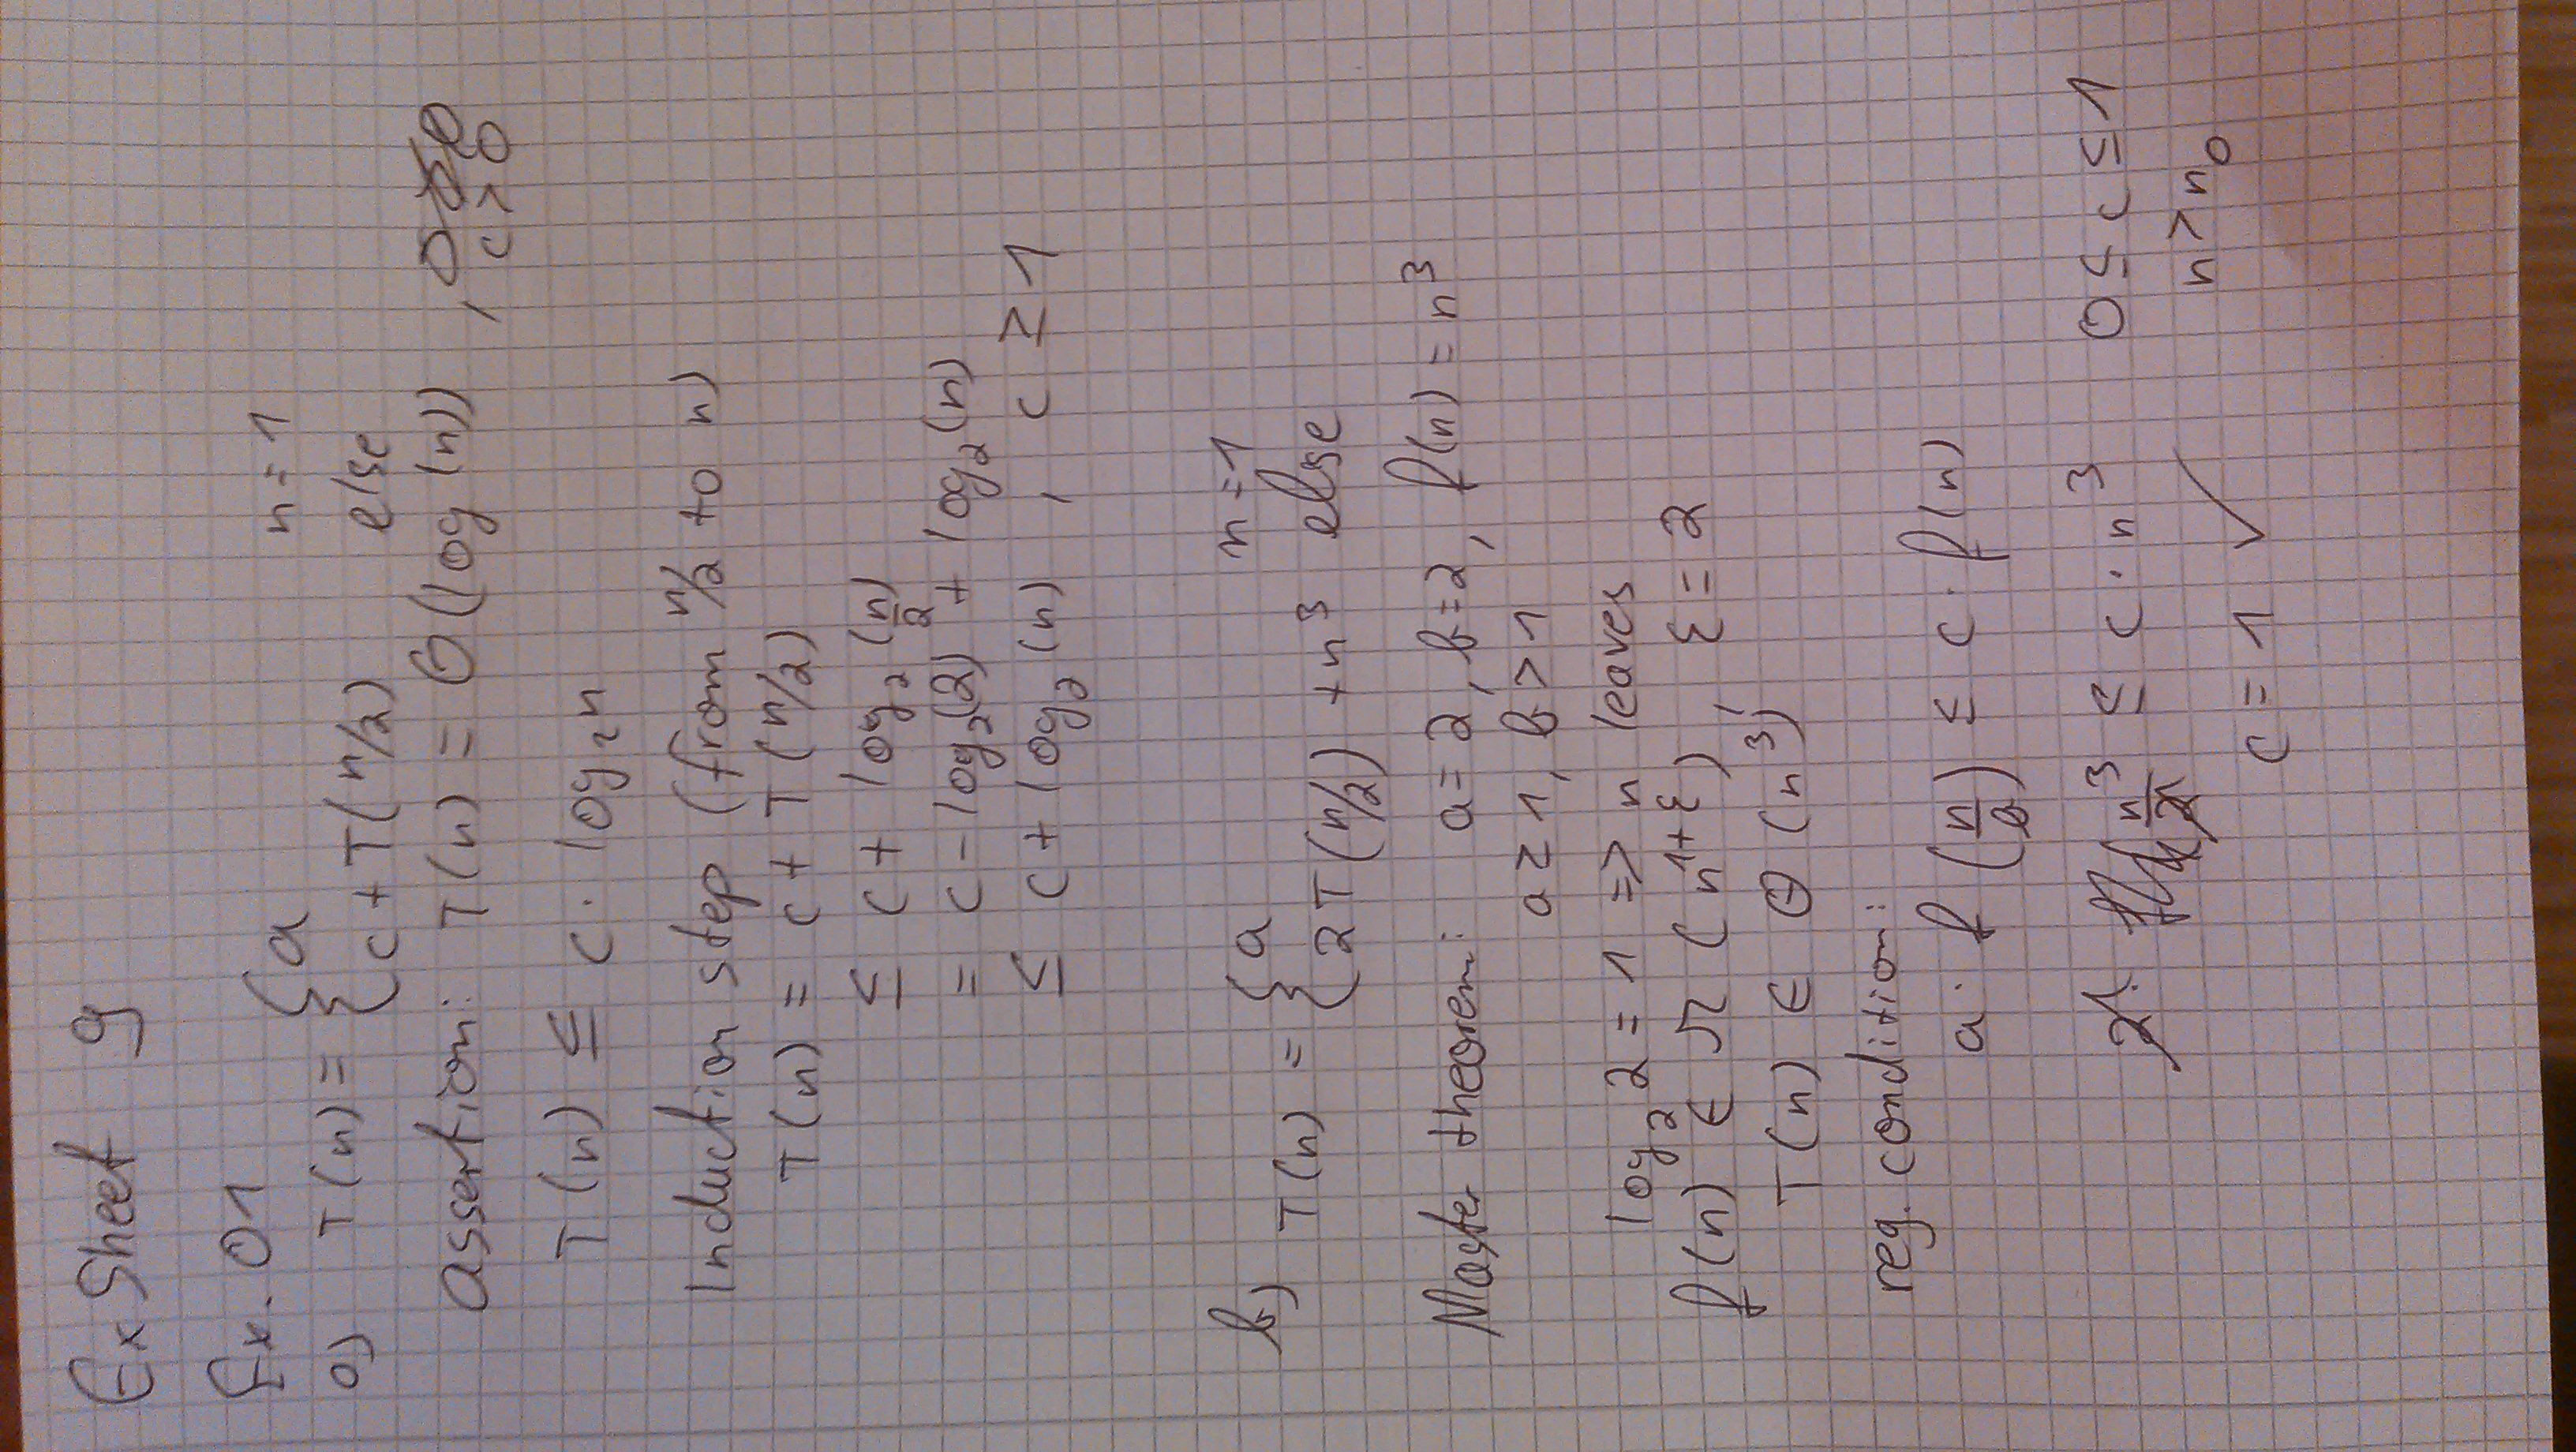 Ex Sheet 9
Ex. 01
a) T(n) = { a n = 1
c + T(n/2) else
Assertion: T(n) = O(log(n)) , c > 0
T(n) ≤ c · log₂n
Induction step (from n/2 to n)
T(n) = c + T(n/2)
≤ c + log₂(n/2)
= c - log₂(2) + log₂(n)
≤ c + log₂(n) , c ≥ 1
b) T(n) = { a n = 1
2T(n/2) + n³ else
Master theorem: a = 2, b = 2, f(n) = n³
a ≥ 1, b > 1
log₂2 = 1 => n leaves
f(n) ∈ Ω(n^(1+ε)), ε = 2
T(n) ∈ Θ(n³)
reg. condition:
a · f(n/b) ≤ c · f(n)
2 · n³/2 ≤ c · n³ 0 ≤ c ≤ 1
n > n₀
c = 1 ✓